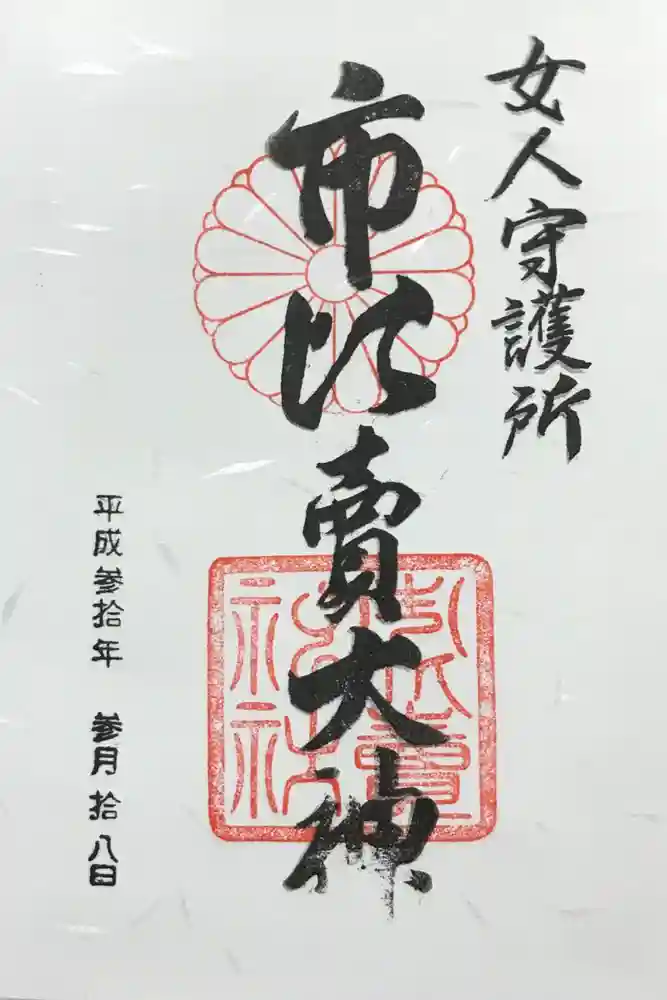 女人守護所
市比賣大神
平成参拾年 参月拾八日